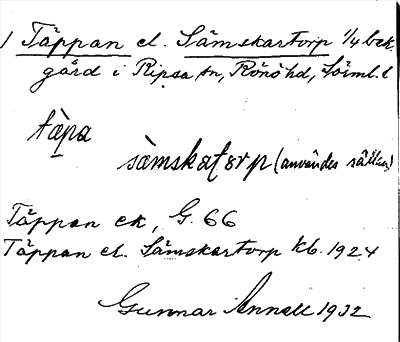 1 Täppan el. Sämskartorp 1/4 bek.
gård i Ripsa sn, Rönö hd, Söiml. l
täpa
sämskatorp (användes sällan)
Täppan ek, G. 66
Täppan el. Sämskartorp kb. 1924
Gunnar Annell 1932